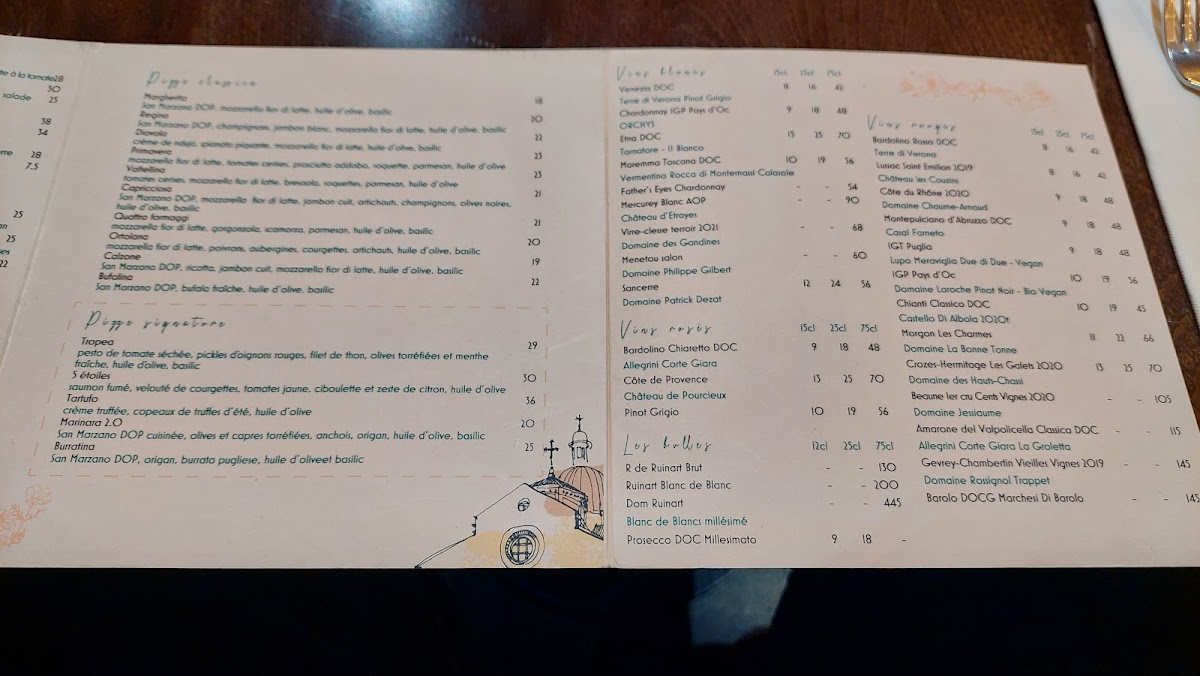 tte à la tomate28
30
salade 25
38
34
28
7.5
25
25
22
Pizze classica
Margherita 18
San Marzano DOP, mozzarella fior di latte, huile d'olive, basilic
Regina 20
San Marzano DOP, champignons, jambon blanc, mozzarella fior di latte, huile d'olive, basilic
Diavola 22
crème de nduja, spianata piquante, mozzarella fior di latte, huile d'olive, basilic
Primavera 23
mozzarella fior di latte, tomates cerises, prosciutto addobo, roquette, parmesan, huile d'olive
Valtellina 23
tomates cerises, mozzarella fior di latte, bresaola, roquettes, parmesan, huile d'olive
Capricciosa 21
San Marzano DOP, mozzarella fior di latte, jambon cuit, artichauts, champignons, olives noires,
huile d'olive, basilic
Quattro formaggi 21
mozzarella fior di latte, gorgonzola, scamorza, parmesan, huile d'olive, basilic
Ortolana 20
mozzarella fior di latte, poivrons, aubergines, courgettes, artichauts, huile d'olive, basilic
Calzone 19
San Marzano DOP, ricotta, jambon cuit, mozzarella fior di latte, huile d'olive, basilic
Bufalina 22
San Marzano DOP, bufala fraîche, huile d'olive, basilic
Pizze signature
Tropea 29
pesto de tomate séchée, pickles d'oignons rouges, filet de thon, olives torréfiées et menthe
fraîche, huile d'olive, basilic
5 étoiles 30
saumon fumé, velouté de courgettes, tomates jaune, ciboulette et zeste de citron, huile d'olive
Tartufo 36
crème truffée, copeaux de truffes d'été, huile d'olive
Marinara 2.0 20
San Marzano DOP cuisinée, olives et capres torréfiées, anchois, origan, huile d'olive, basilic
Burratina 25
San Marzano DOP, origan, burrata pugliese, huile d'oliveet basilic
Vins blancs 15cl 25cl 75cl
Venezia DOC 8 16 42
Terre di Verona Pinot Grigio
Chardonnay IGP Pays d'Oc 9 18 48
ORCHYS
Etna DOC 13 25 70
Tornatore - Il Bianco
Maremma Toscana DOC 10 19 56
Vermentino Rocca di Montemassi Calasole
Father's Eyes Chardonnay - - 54
Mercurey Blanc AOP - - 90
Château d'Etroyes
Virre-clesse terroir 2021 - - 68
Domaine des Gandines
Menetou salon - - 60
Domaine Philippe Gilbert
Sancerre 12 24 56
Domaine Patrick Dezat
Vins rosés 15cl 25cl 75cl
Bardolino Chiaretto DOC 9 18 48
Allegrini Corte Giara
Côte de Provence 13 25 70
Château de Pourcieux
Pinot Grigio 10 19 56
Les bulles 12cl 25cl 75cl
R de Ruinart Brut - - 130
Ruinart Blanc de Blanc - - 200
Dom Ruinart - - 445
Blanc de Blancs millésimé
Prosecco DOC Millesimato 9 18 -
Vins rouges 15cl 25cl 75cl
Bardolino Rosso DOC 8 16 42
Terre di Verona
Lussac Saint Emilion 2019 8 16 42
Château les Couzins
Côte du Rhône 2020 9 18 48
Domaine Chaume-Arnaud
Montepulciano d'Abruzzo DOC 9 18 48
Casal Farneto
IGT Puglia 9 18 48
Lupo Meraviglia Due di Due - Vegan
IGP Pays d'Oc 10 19 56
Domaine Laroche Pinot Noir - Bio Vegan
Chianti Classico DOC 10 19 45
Castello Di Albola 2020t
Morgon Les Charmes 11 22 66
Domaine La Bonne Tonne
Crozes-Hermitage Les Galets 2020 13 25 70
Domaine des Hauts-Chassi
Beaune 1er cru Cents Vignes 2020 - - 105
Domaine Jessiaume
Amarone del Valpolicella Classico DOC - - 115
Allegrini Corte Giara La Groletta
Gevrey-Chambertin Vieilles Vignes 2019 - - 145
Domaine Rossignol Trappet
Barolo DOCG Marchesi Di Barolo - - 145